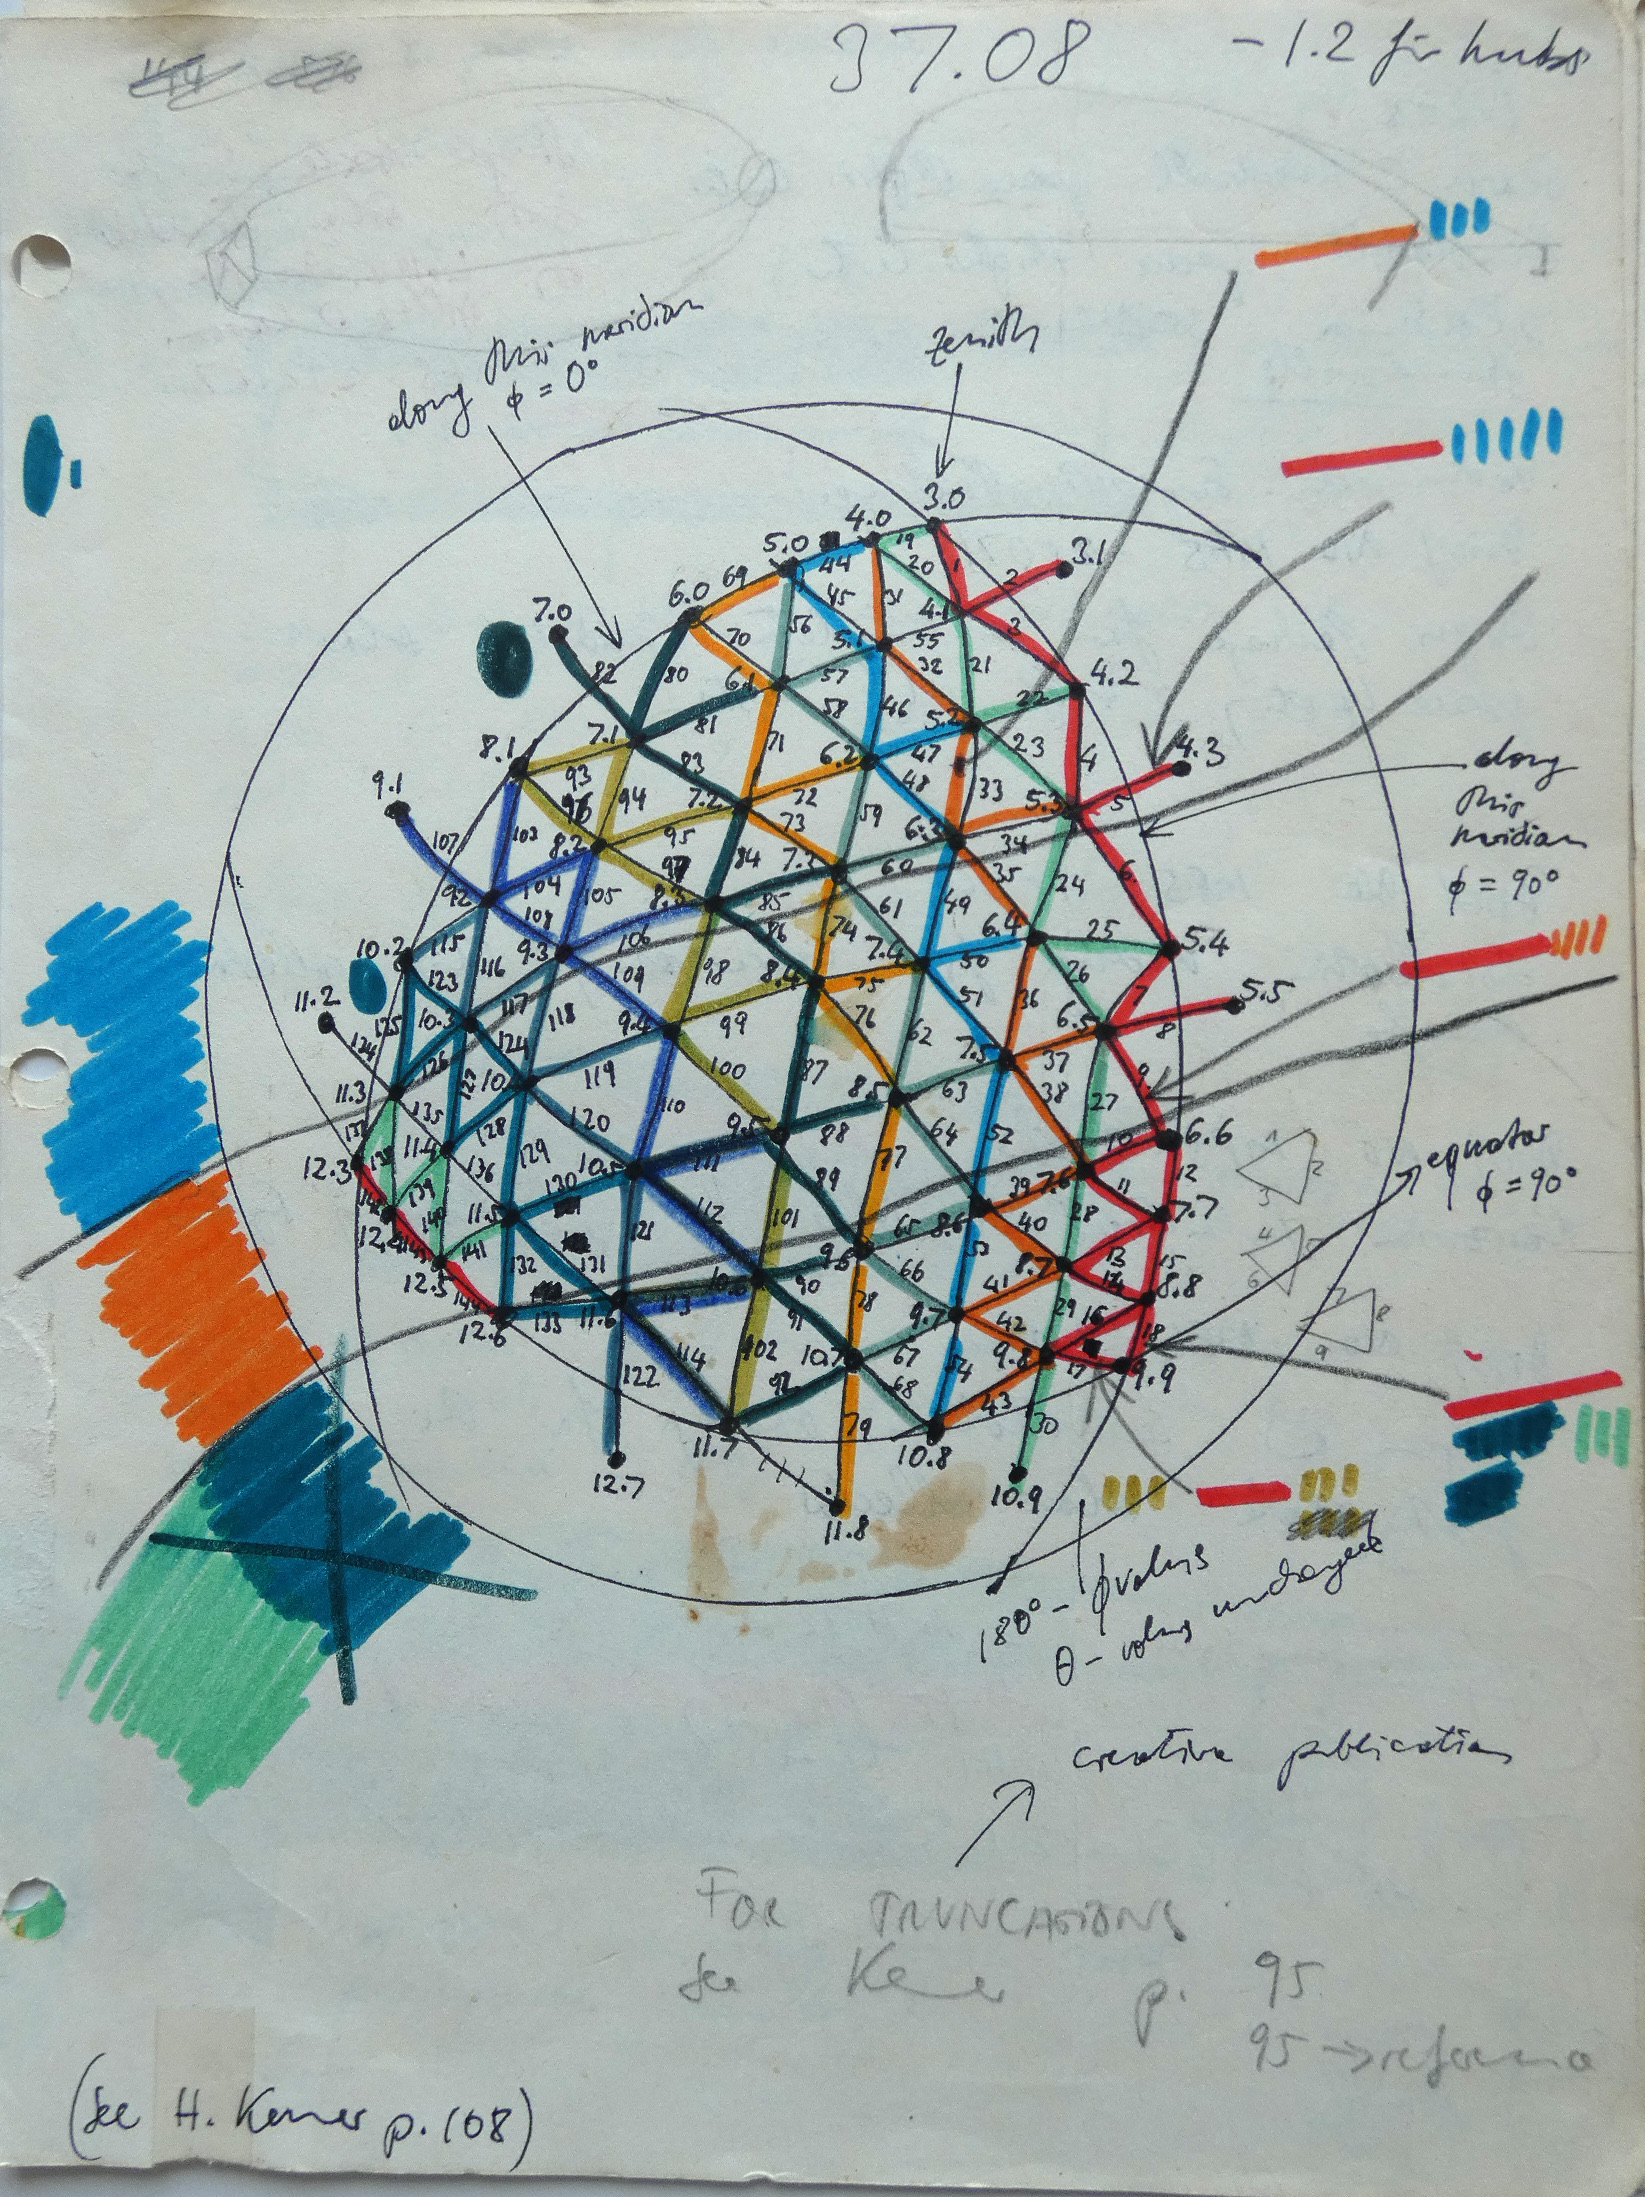 37.08
- 1.2 for hubs
along this meridian
φ = 0°
Zenith
3.0
4.0
19
3.1
5.0
44
20
1
2
6.0
69
45
31
4.1
3
7.0
70
56
5.1
55
82
80
6.1
57
32
21
4.2
8.1
7.1
81
58
46
5.2
22
93
83
71
6.2
47
23
4
4.3
9.1
96
94
7.2
72
48
33
5.3
5
107
103
8.2
95
73
59
6.3
34
along
this
meridian
φ = 90°
104
97
84
7.3
60
35
6
9.2
105
8.3
85
49
24
108
9.3
106
86
61
6.4
25
5.4
10.2
115
74
7.4
50
26
123
116
109
98
8.4
75
51
36
7
5.5
11.2
125
10.3
117
118
9.4
99
76
62
7.5
6.5
8
124
126
124
119
100
87
8.5
63
37
9
11.3
127
10.4
110
38
27
135
128
120
9.5
88
64
52
10
6.6
137
11.4
129
111
77
7.6
12
equator
φ = 90°
12.3
138
136
130
10.5
89
39
11
139
11.5
112
101
65
8.6
40
28
7.7
12.4
140
121
9.6
53
13
15
141
132
131
10.6
90
66
41
8.7
14
8.8
12.5
144
133
11.6
113
78
9.7
42
29
16
18
12.6
91
9.8
17
9.9
122
114
102
10.7
67
54
92
68
43
30
11.7
79
10.8
12.7
10.9
11.8
180° - φ values
θ - values unchanged
1
2
3
4
5
6
7
8
9
creative publication
FOR TRUNCATIONS
See Kenner p. 95
95 →
(See H. Kenner p. 108)